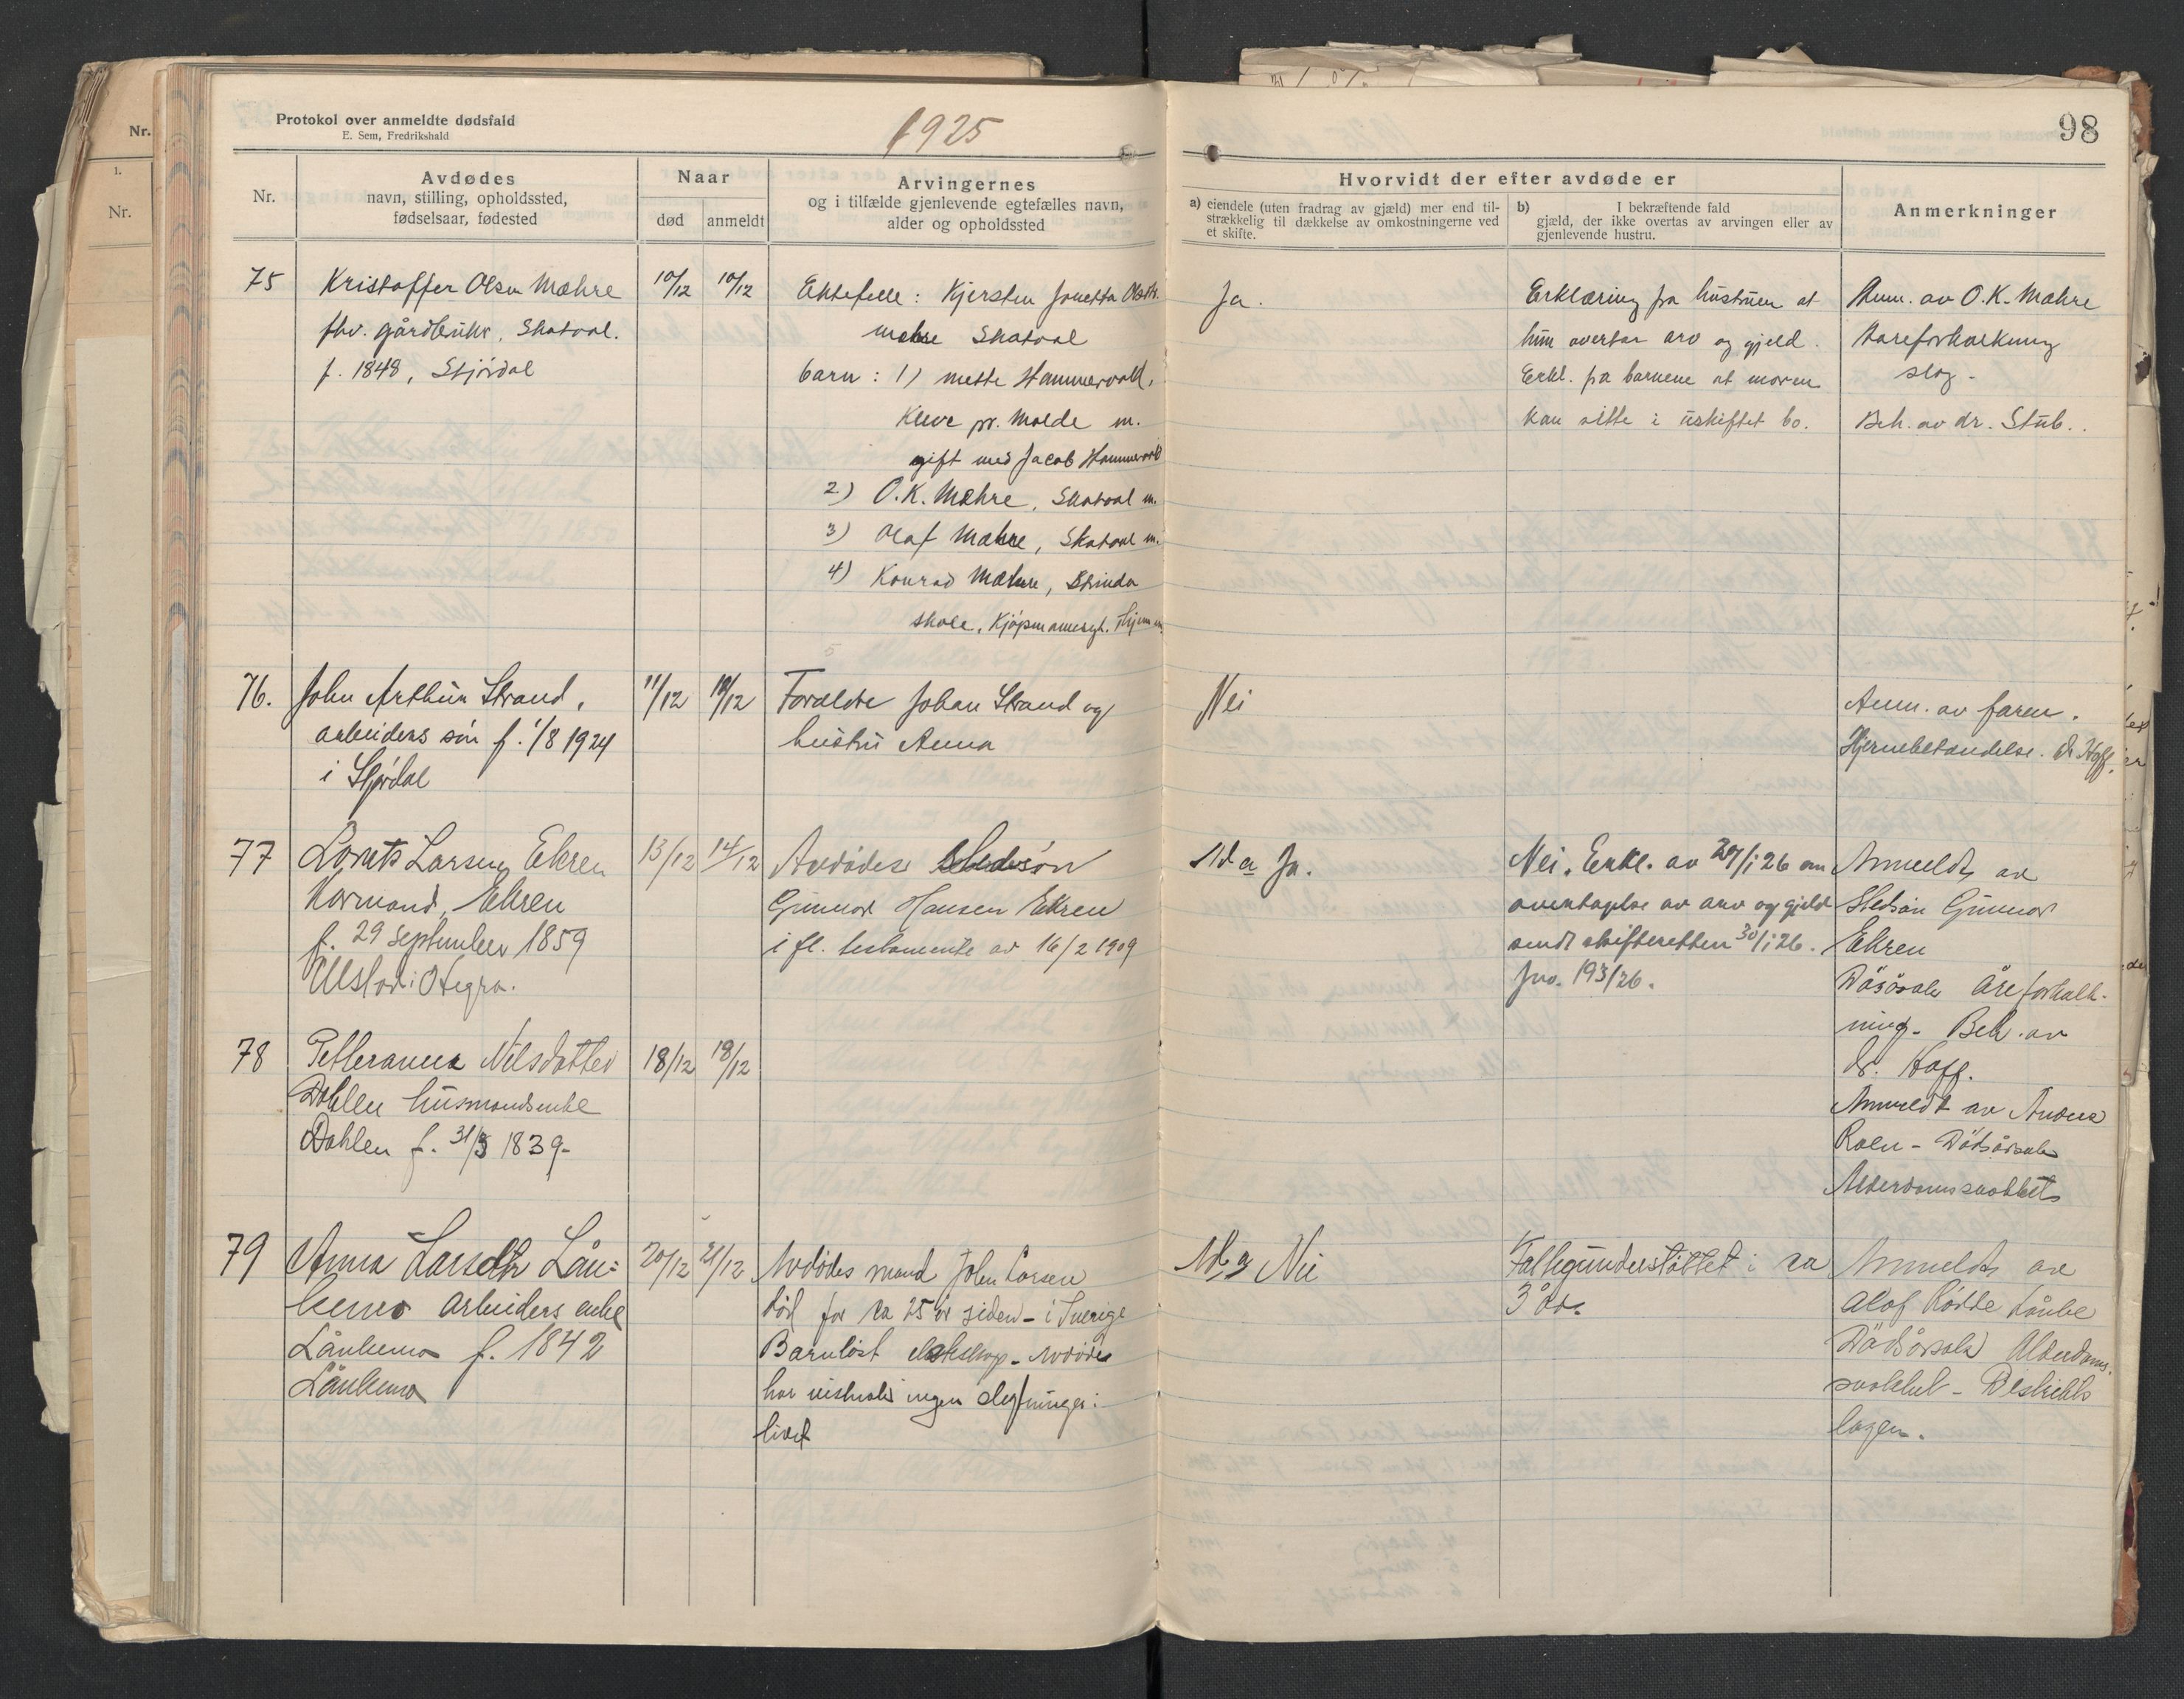 Protokol over anmeldte dødsfald
E. Sem, Fredrikshald
1925
98
Nr.
1.
Nr.
Nr.
Avdødes
navn, stilling, opholdssted,
fødselsaar, fødested
Naar
død
anmeldt
Arvingernes
og i tilfælde gjenlevende egtefælles navn,
alder og opholdssted
Hvorvidt der efter avdøde er
a) eiendele (uten fradrag av gjæld) mer end til-
strækkelig til dækkelse av omkostningerne ved
et skifte.
b) I bekræftende fald
gjæld, der ikke overtas av arvingen eller av
gjenlevende hustru.
Anmerkninger
75
Kristoffer Olsen Mæhre
fhv. gårdbruker, Skatval.
f. 1848, Stjördal
10/12
10/12
Ektefelle: Kjersten Jonetta Olsdtr.
Mæhre Skatval
barn: 1) Mette Hammervold,
Kleve pr. Molde m.
gift med Jacob Hammervold
2) O.K. Mæhre, Skatval m.
3) Olaf Mæhre, Skatval m.
4) Konrad Mæhre, Strinda
skole, Kjøpmannsgt. Thjem m.
Ja.
Erklæring fra hustruen at
hun overtar arv og gjeld.
Erkl. fra barnene at moren
kan sitte i uskiftet bo.
Anm. av O.K. Mæhre
Aareforkalkning
slag.
Beh. av dr. Stub.
76.
John Arthur Strand,
arbeiders sön f. 1/8 1924
i Stjørdal
11/12
12/12
Forældre Johan Strand og
hustru Anna
Nei
Anm. av faren.
Hjernebetændelse. dr Hoff.
77
Lornts Larsen Ekren
Kårmand, Ekren
f. 29 september 1859
Ulstad i Hegra.
13/12
14/12
Avdødes Stedsøn
Gunnar Hansen Ekren
i fl. testamente av 16/2 1909
Ad a Ja.
Nei. Erkl. av 29/1 26 om
overtagelse av arv og gjeld
sendt skifteretten 30/1 26.
Jno. 193/26.
Anmeldt av
Stedsön Gunnar
Ekren
Dösårsak Åreforkalk-
ning. Beh. av
dr. Hoff.
78
Petteranna Nilsdatter
Dahlen husmandsenke
Dahlen f. 31/3 1839-
18/12
19/12
Anmeldt av Anders
Roen - Dödsårsak
Alderdomssvakhet
79
Anna Larsdtr Lån=
kemo arbeiders enke
Lånkemo f. 1842
Lånkemo
20/12
21/12
Avdødes mand John Larsen
död for ca 25 år siden - i Sverige
Barnløst ekteskap. Avdøde
har ingen slegtninger i
livet
Ad a Nei
Fattigunderstöttet i ca
3 år.
Anmeldt av
Olof Rödde Lånke
Dödsårsak Alderdoms-
svakhet - Distrikts
lægen.